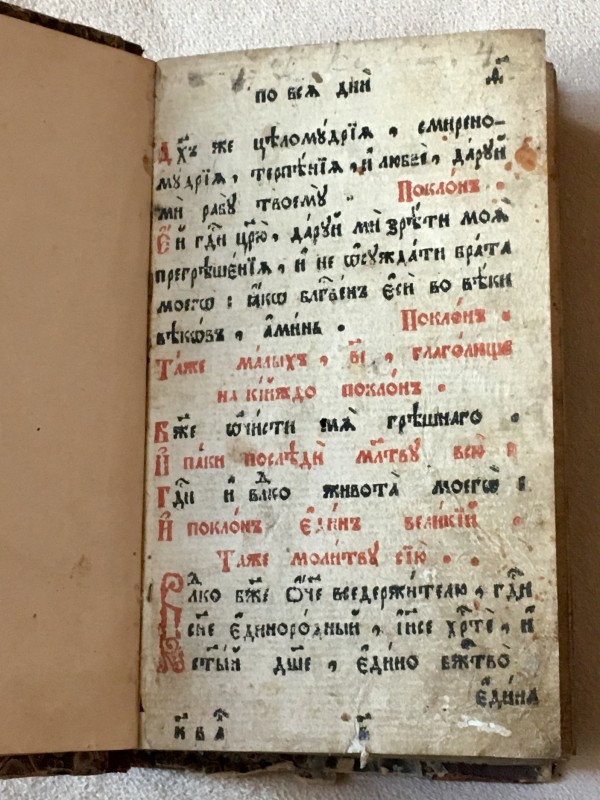 по всѧ̀ дни̑ д҃
Дх҃ъ же цѣломꙋ́дрїѧ , смирено-
мꙋ́дрїѧ , терпѣ́нїѧ , и҆ любвѐ , да́рꙋй
ми рабꙋ̀ твоемꙋ̀ . Покло́нъ .
Е҆́й гд҇и цр҃ю̀ , да́рꙋй ми зрѣ́ти моѧ̑
прегрѣше́нїѧ , и҆ не ѡ҆сꙋжда́ти бра́та
моегѡ̀ : ꙗ҆́кѡ блг҇ве́нъ є҆сѝ во вѣ́ки
вѣкѡ́въ , а҆ми́нь . Покло́нъ .
Та́же ма́лыхъ , в҃і , глаго́люще
на кі́йждо покло́нъ .
Бж҃е ѡ҆чи́сти мѧ̀ грѣ́шнаго .
И҆ па́ки послѣдѝ мл҃твꙋ всю̀ :
Гд҇и и҆ влⷣко живота̀ моегѡ̀ :
И҆ покло́нъ є҆ди́нъ вели́кїй .
Та́же моли́твꙋ сїю̀ .
Влⷣко бж҃е ѻ҆́ч҃е вседержи́телю , гд҇и
сн҃е є҆диноро́дный , і҆и҃се хр҇тѐ , и҆
ст҃ы́й дш҃е , є҆ди́но бж҇тво̀
є҆ди́на